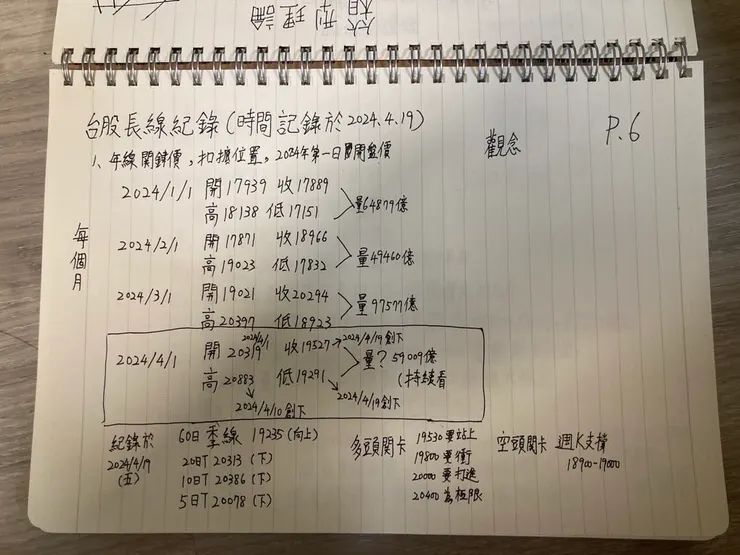 型理論
台股長線紀錄(時間記錄於2024.4.19)
觀念
P.6
1、年線關鍵價,扣擴位置,2024年第一日開盤價
每個月
2024/1/1 開17939 收17889
高18138 低17151
量64879億
2024/2/1 開17871 收18966
高19023 低17832
量49460億
2024/3/1 開19021 收20294
高20397 低18923
量97577億
2024/4/1
2024/4/1 開20319 收19527 → 2024/4/19創下
高20883 低19291
量?59009億
(持續看
2024/4/10創下
2024/4/19創下
紀錄於
2024/4/19
(五)
60日季線 19235(向上)
20日T 20313(下)
10日T 20386(下)
5日T 20078(下)
多頭關卡
19530要站上
19800要衝
20000要打進
20400為極限
空頭關卡 週K支撐
18900-19000